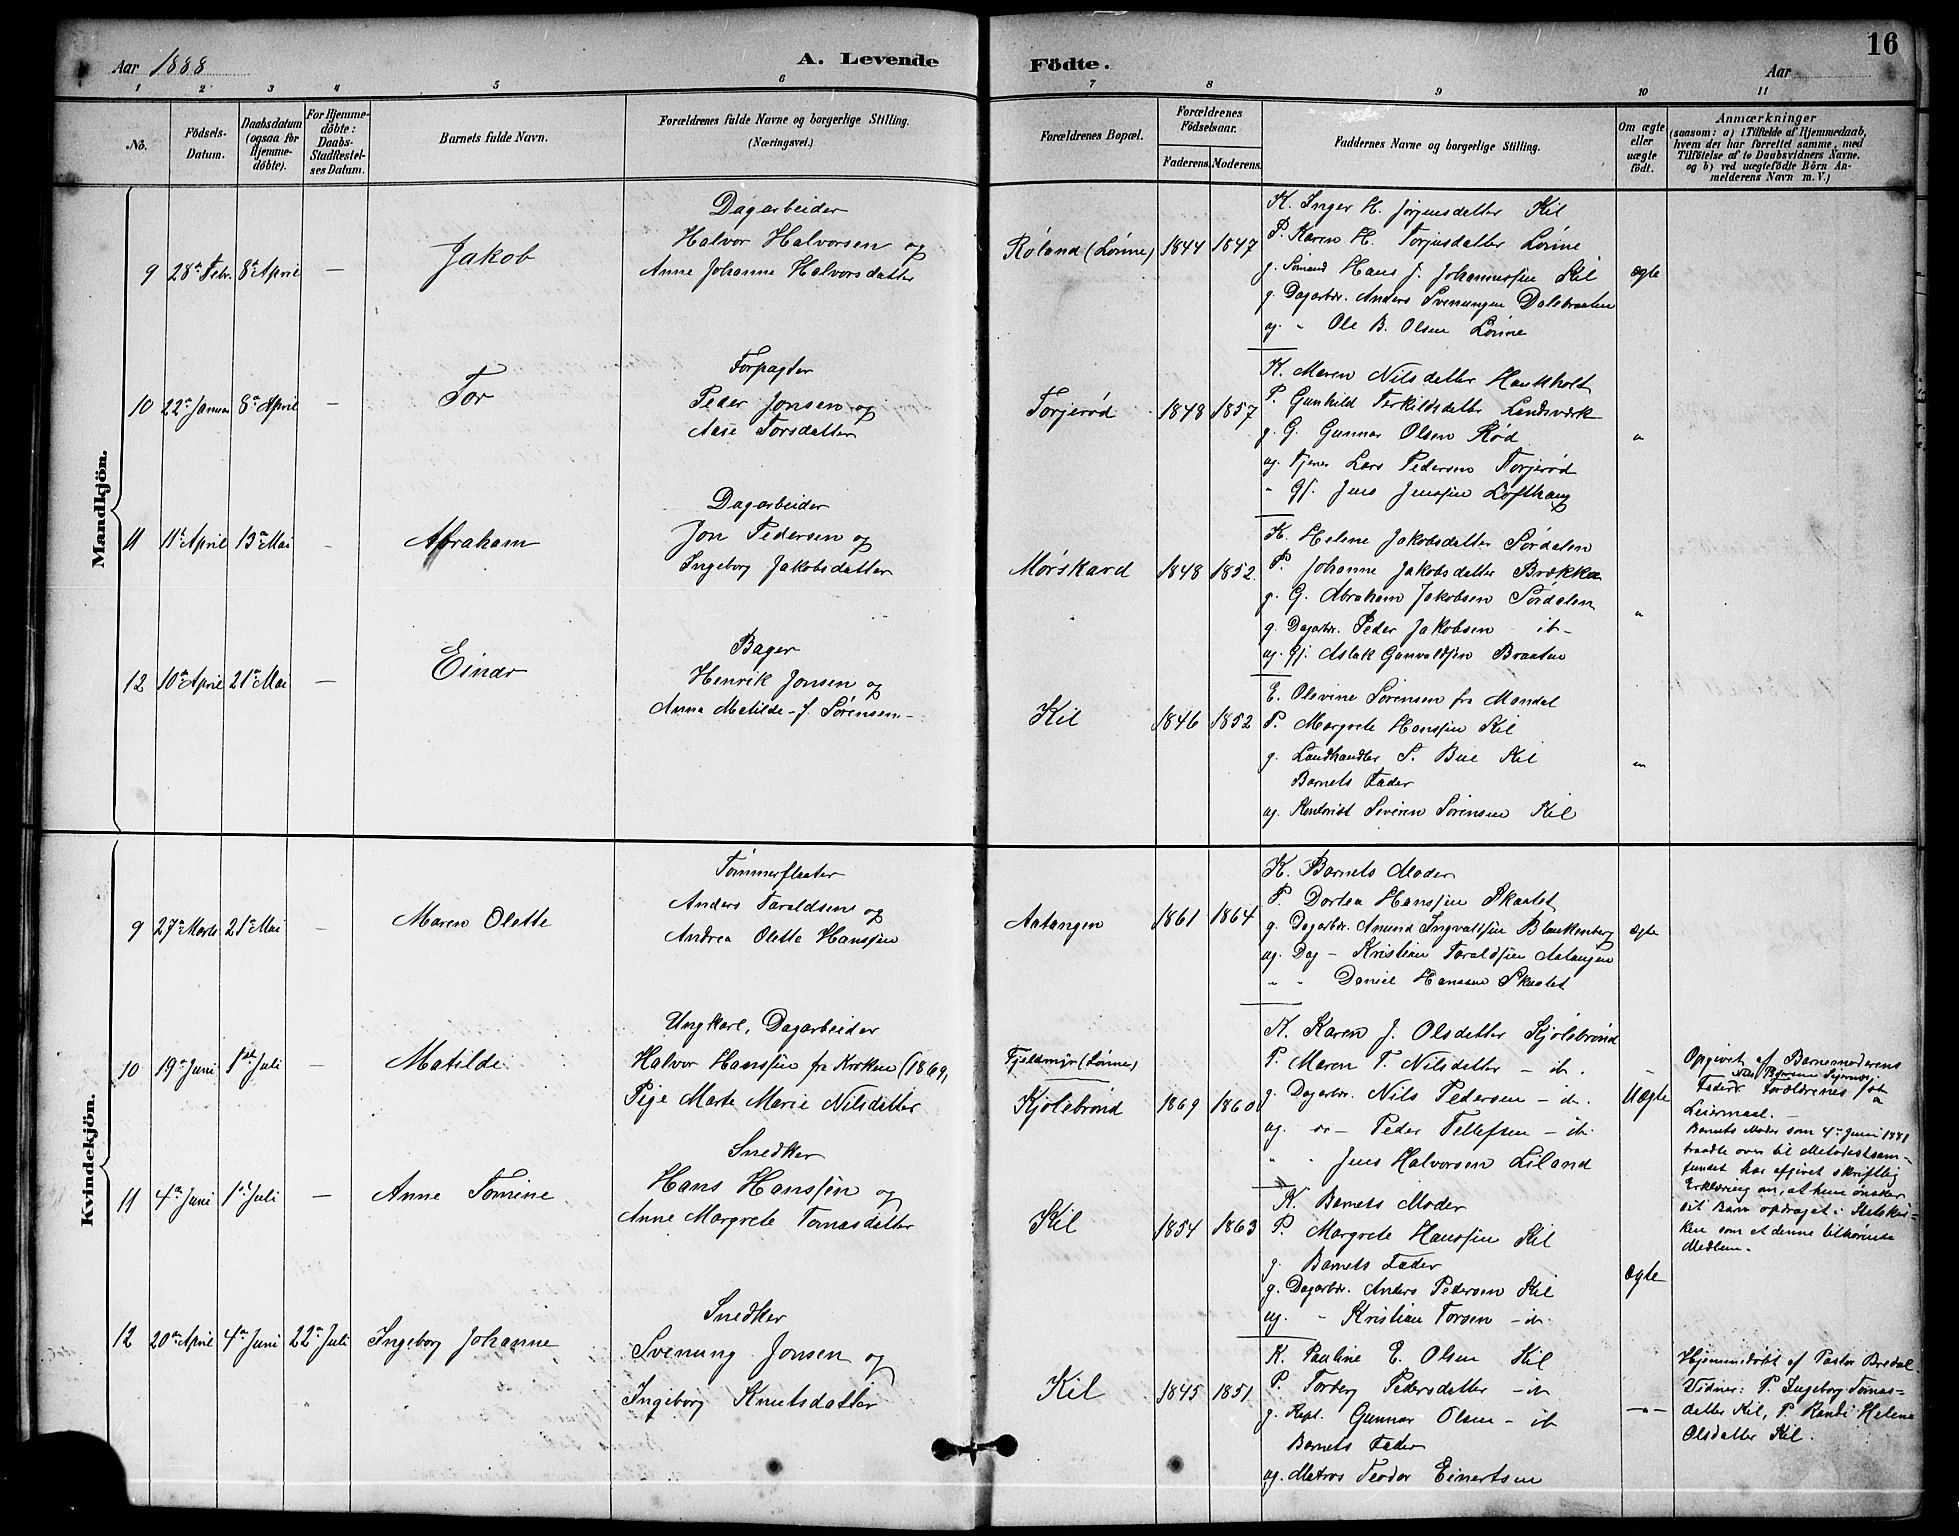 Aar 1888
A. Levende Födte.
Aar
16
1 2 3 4 5 6 7 8 9 10 11
No.
Födsels-Datum.
Daabsdatum (ogsaa for Hjemmedöbte).
For Hjemmedöbte: Daabs-Stadfæstelses Datum.
Barnets fulde Navn.
Forældrenes fulde Navne og borgerlige Stilling. (Næringsvei.)
Forældrenes Bopæl.
Forældrenes Födselsaar.
Faderens. Moderens.
Faddernes Navne og borgerlige Stilling.
Om ægte eller uægte födt.
Anmærkninger
(saasom: a) i Tilfælde af Hjemmedaab,
hvem der har forrettet samme, med
Tilföielse af to Daabsvidners Navne.
og b) ved uægtefödte Börn Anmelderens Navn m. V.)
Mandkjön.
9 28de Febr. 8de April — Jakob
Dagarbeider
Halvor Halvorsen og
Anne Johanne Halvorsdatter
Røland (Lønne) 1844 1847
K. Inger H. Jørgensdatter Kil
P. Karen H. Torjusdatter Lønne
g. Sømand Hans J. Johannessen Kil
g. Dagarbr. Anders Svenungsen Dalsbraaten
ug. " Ole B. Olsen Lønne
ægte
10 22de Januar 8de April — Tor
Forpagter
Peder Jonsen og
Aase Torsdatter
Torjerød 1848 1857
K. Maren Nilsdatter Haukholt
P. Gunhild Terkildsdatter Landsværk
g. G. Gunnar Olsen Rød
ug. Tjener Lars Pedersen Torjerød
" Gf. Jens Jenssen Lofthaug
"
11 11te April 13de Mai - Abraham
Dagarbeider
Jon Pedersen og
Ingeborg Jakobsdatter
Mørskard 1848 1852
K. Helene Jakobsdatter Sørdalen
P. Johanne Jakobsdatter Brække
g. G. Abraham Jakobsen Sørdalen
g. Dagarbr. Peder Jakobsen - ib -
ug. Gf. Aslak Gunvaldsen Braaten
"
12 10de April 21de Mai — Einar
Bager
Henrik Jonsen og
Anna Matilde J. Sørensen
Kil 1846 1852
E. Olevine Sørensen fra Mandal
P. Margrete Hanssen Kil
g. Landhandler S. Bue Kil
Barnets Fader
ug. Kontorist Severin Sørensen Kil
"
Kvindekjön.
9 27de Marts 21de Mai — Maren Olette
Tømmerflaater
Anders Taraldsen og
Andrea Olette Hanssen
Aatangen 1861 1864
K. Barnets Moder
P. Dortea Hanssen Skaatet
g. Dagarbr. Amund Ingvaldsen Blankenberg
ug. Dag - Kristian Taraldsen Aatangen
" " Daniel Hanssen Skaatet
ægte
10 19de Juni 1ste Juli — Matilde
Ungkarl, Dagarbeider
Halvor Hanssen fra Kroken (1869,
Pige Marte Marie Nilsdatter
Fjeldmyr (Lønne)
Kjølebrønd 1869 1860
K. Karen J. Olsdatter Kjølebrønd
P. Maren T. Nilsdatter - ib.
g. Dagarbr. Nils Pedersen - ib.
ug. " - Peder Tellefsen - ib
" " Jens Halvorsen Liland
Uægte
Opgivet af Barnemoderens
Fader
Forældrenes 1ste
Leiermaal. -
Barnets Moder som 4de Juni 1881
traadte over til Metodistsam-
fundet har afgivet skriftlig
Erklæring om, at hun ønsker
sit Barn opdraget i Statskir-
ken som et denne tilhørende
Medlem.
11 4de Juni 1ste Juli — Anne Tomine
Snedker
Hans Hanssen og
Anne Margrete Tomasdatter
Kil 1854 1863
K. Barnets Moder
P. Margrete Hanssen Kil
g. Barnets Fader
g. Dagarbr. Anders Pedersen Kil
ug. " Kristian Torsen - ib.
ægte
12 20de April 4de Juni 22de Juli Ingeborg Johanne
Snedker
Svenung Jonsen og
Ingeborg Knutsdatter
Kil 1845 1851
K. Pauline E. Olsen Kil
P. Torberg Pedersdatter - ib
g. Kapt. Gunnar Olsen - ib
Barnets Fader
ug. Matros Teodor Einertsen
- " -
Hjemmedøbt af Pastor Bredal
Vidner: P. Ingeborg Tomas-
datter Kil, P. Randi Helene
Olsdatter Kil.